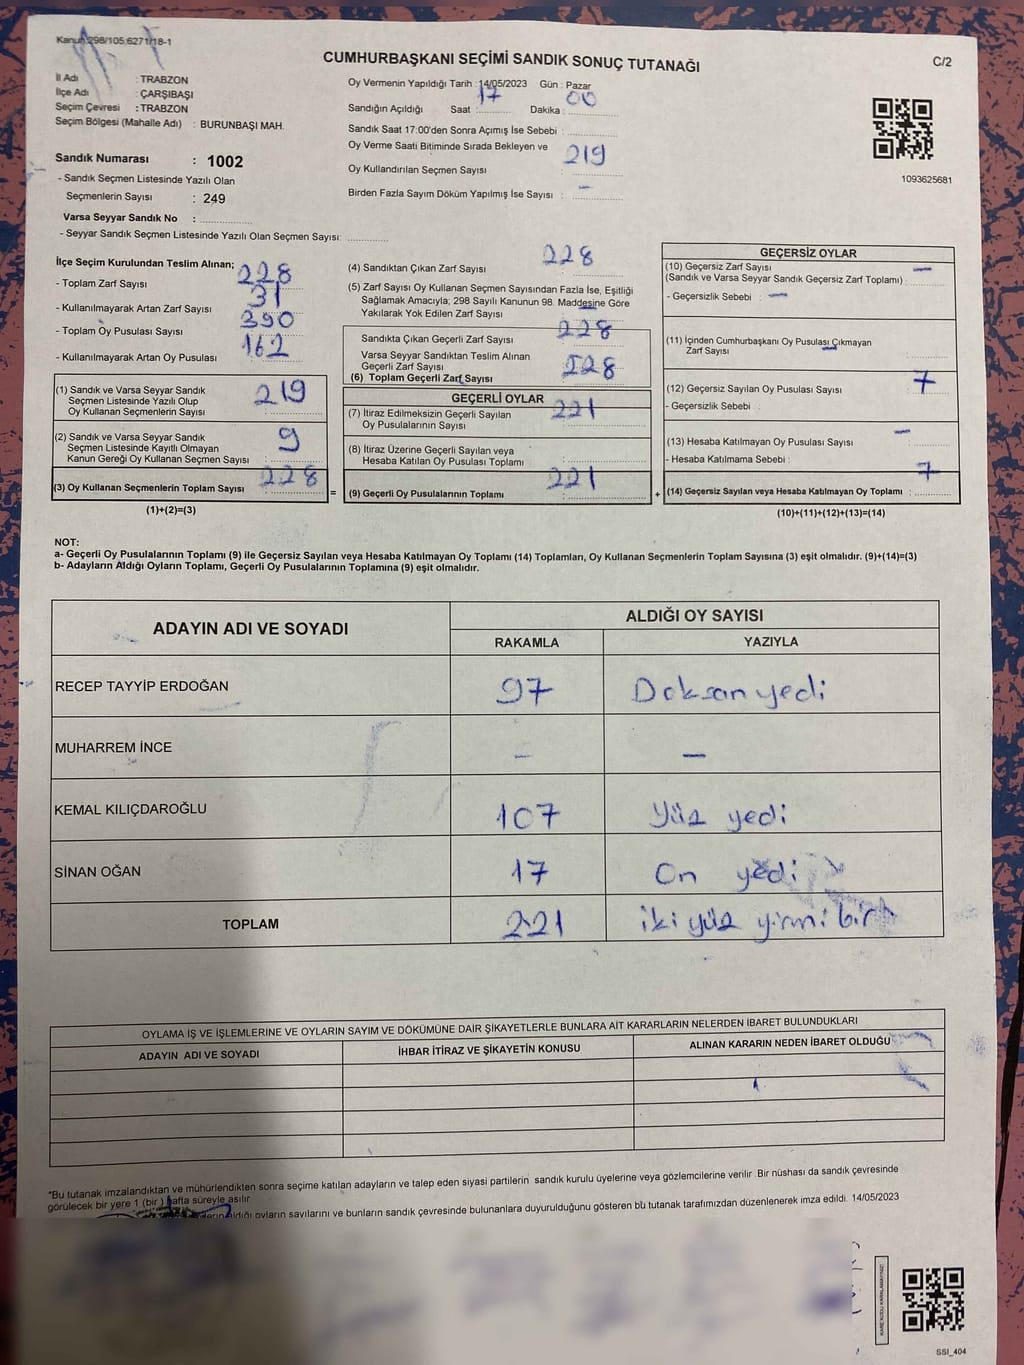 Kanun 298/105,6271/18-1
CUMHURBAŞKANI SEÇİMİ SANDIK SONUÇ TUTANAĞI
C/2
İl Adı : TRABZON
İlçe Adı : ÇARŞIBAŞI
Seçim Çevresi : TRABZON
Seçim Bölgesi (Mahalle Adı) : BURUNBAŞI MAH.
Oy Vermenin Yapıldığı Tarih : 14/05/2023 Gün : Pazar
Sandığın Açıldığı Saat : 17 Dakika : 00
Sandık Saat 17:00'den Sonra Açımış İse Sebebi :
Oy Verme Saati Bitiminde Sırada Bekleyen ve
Oy Kullandırılan Seçmen Sayısı 219
Birden Fazla Sayım Döküm Yapılmış İse Sayısı : -
1093625681
Sandık Numarası : 1002
- Sandık Seçmen Listesinde Yazılı Olan
Seçmenlerin Sayısı : 249
Varsa Seyyar Sandık No :
- Seyyar Sandık Seçmen Listesinde Yazılı Olan Seçmen Sayısı:
İlçe Seçim Kurulundan Teslim Alınan;
- Toplam Zarf Sayısı 228
- Kullanılmayarak Artan Zarf Sayısı 31
- Toplam Oy Pusulası Sayısı 390
- Kullanılmayarak Artan Oy Pusulası 162
(1) Sandık ve Varsa Seyyar Sandık
Seçmen Listesinde Yazılı Olup
Oy Kullanan Seçmenlerin Sayısı 219
(2) Sandık ve Varsa Seyyar Sandık
Seçmen Listesinde Kayıtlı Olmayan
Kanun Gereği Oy Kullanan Seçmen Sayısı 9
(3) Oy Kullanan Seçmenlerin Toplam Sayısı 228
(1)+(2)=(3)
=
(4) Sandıktan Çıkan Zarf Sayısı 228
(5) Zarf Sayısı Oy Kullanan Seçmen Sayısından Fazla İse, Eşitliği
Sağlamak Amacıyla; 298 Sayılı Kanunun 98. Maddesine Göre
Yakılarak Yok Edilen Zarf Sayısı -
Sandıkta Çıkan Geçerli Zarf Sayısı 228
Varsa Seyyar Sandıktan Teslim Alınan
Geçerli Zarf Sayısı
(6) Toplam Geçerli Zarf Sayısı 228
GEÇERLİ OYLAR
(7) İtiraz Edilmeksizin Geçerli Sayılan
Oy Pusulalarının Sayısı 221
(8) İtiraz Üzerine Geçerli Sayılan veya
Hesaba Katılan Oy Pusulası Toplamı
(9) Geçerli Oy Pusulalarının Toplamı 221
+
GEÇERSİZ OYLAR
(10) Geçersiz Zarf Sayısı -
(Sandık ve Varsa Seyyar Sandık Geçersiz Zarf Toplamı)
- Geçersizlik Sebebi : -
(11) İçinden Cumhurbaşkanı Oy Pusulası Çıkmayan
Zarf Sayısı -
(12) Geçersiz Sayılan Oy Pusulası Sayısı 7
- Geçersizlik Sebebi :
(13) Hesaba Katılmayan Oy Pusulası Sayısı -
- Hesaba Katılmama Sebebi :
(14) Geçersiz Sayılan veya Hesaba Katılmayan Oy Toplamı : 7
(10)+(11)+(12)+(13)=(14)
NOT:
a- Geçerli Oy Pusulalarının Toplamı (9) ile Geçersiz Sayılan veya Hesaba Katılmayan Oy Toplamı (14) Toplamları, Oy Kullanan Seçmenlerin Toplam Sayısına (3) eşit olmalıdır. (9)+(14)=(3)
b- Adayların Aldığı Oyların Toplamı, Geçerli Oy Pusulalarının Toplamına (9) eşit olmalıdır.
ADAYIN ADI VE SOYADI ALDIĞI OY SAYISI
RAKAMLA YAZIYLA
RECEP TAYYİP ERDOĞAN 97 Doksan yedi
MUHARREM İNCE - -
KEMAL KILIÇDAROĞLU 107 Yüz yedi
SİNAN OĞAN 17 On yedi
TOPLAM 221 iki yüz yirmi bir
OYLAMA İŞ VE İŞLEMLERİNE VE OYLARIN SAYIM VE DÖKÜMÜNE DAİR ŞİKAYETLERLE BUNLARA AİT KARARLARIN NELERDEN İBARET BULUNDUKLARI
ADAYIN ADI VE SOYADI İHBAR İTİRAZ VE ŞİKAYETİN KONUSU ALINAN KARARIN NEDEN İBARET OLDUĞU
*Bu tutanak imzalandıktan ve mühürlendikten sonra seçime katılan adayların ve talep eden siyasi partilerin sandık kurulu üyelerine veya gözlemcilerine verilir. Bir nüshası da sandık çevresinde
görülecek bir yere 1 (bir) hafta süreyle asılır.
aldığı oyların sayılarını ve bunların sandık çevresinde bulunanlara duyurulduğunu gösteren bu tutanak tarafımızdan düzenlenerek imza edildi. 14/05/2023
SSI_404